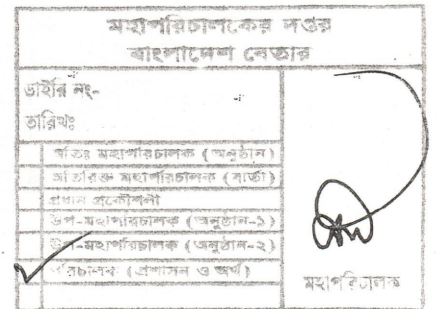 মহাপরিচালকের দপ্তর
বাংলাদেশ বেতার
ডাইরি নং-
তারিখঃ
অতিঃ মহাপরিচালক (অনুষ্ঠান)
অতিরিক্ত মহাপরিচালক (বার্তা)
প্রধান প্রকৌশলী
উপ-মহাপরিচালক (অনুষ্ঠান-১)
উপ-মহাপরিচালক (অনুষ্ঠান-২)
পরিচালক (প্রশাসন ও অর্থ)
মহাপরিচালক